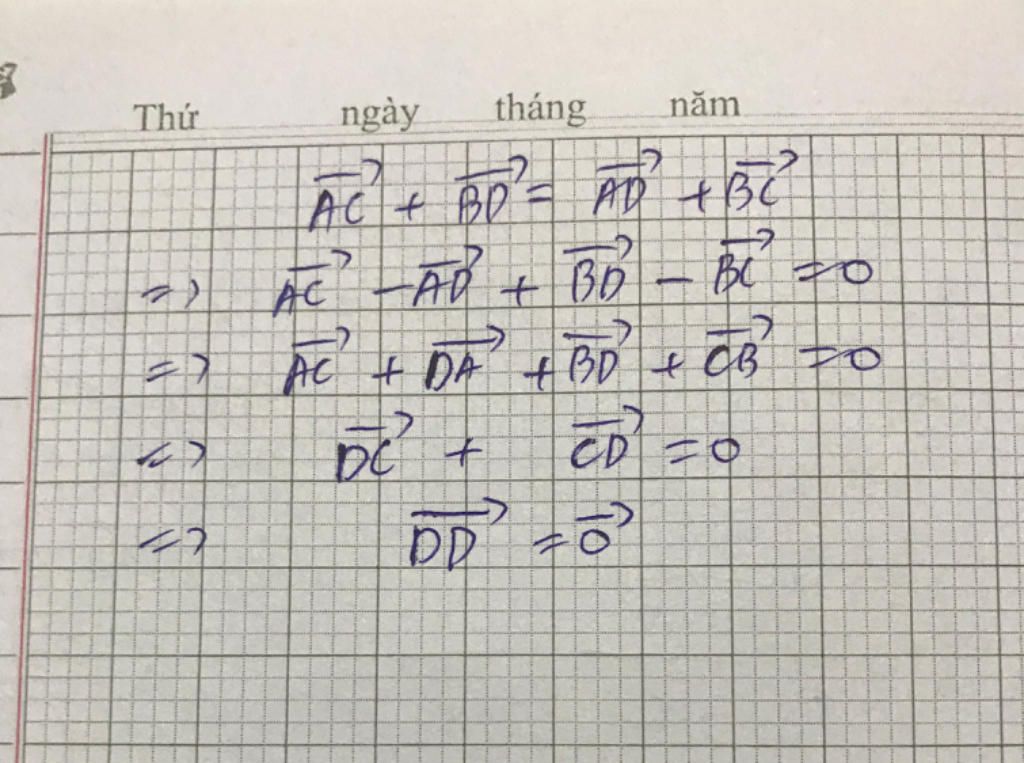 Thứ ngày tháng năm
$\overrightarrow{AC} + \overrightarrow{BD} = \overrightarrow{AD} + \overrightarrow{BC}$
$\Rightarrow \overrightarrow{AC} - \overrightarrow{AD} + \overrightarrow{BD} - \overrightarrow{BC} = 0$
$\Rightarrow \overrightarrow{AC} + \overrightarrow{DA} + \overrightarrow{BD} + \overrightarrow{CB} = 0$
$\Leftrightarrow \overrightarrow{DC} + \overrightarrow{CD} = 0$
$\Rightarrow \overrightarrow{DD} = \overrightarrow{0}$